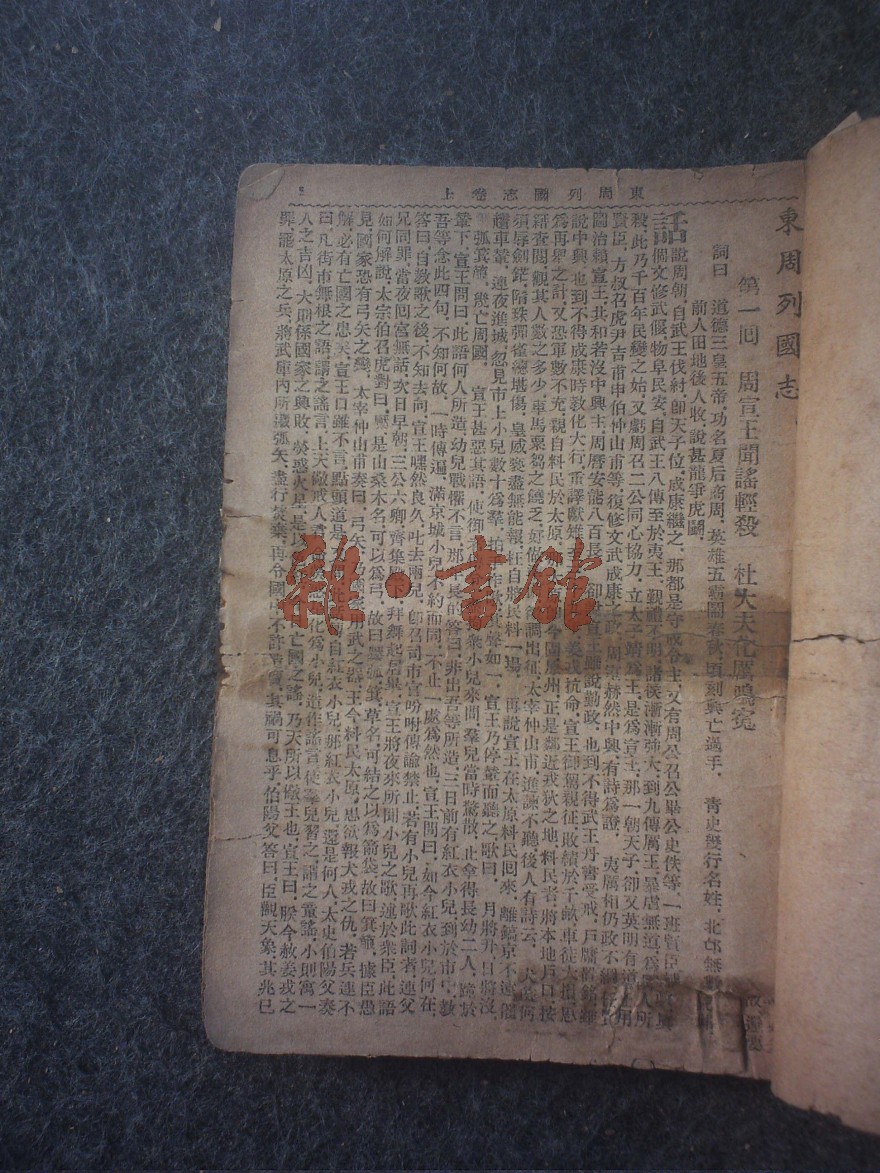 東周列國志卷上
東周列國志
第一回 周宣王聞謠輕殺 杜大夫化厲鳴冤
詞曰 道德三皇五帝，功名夏后商周，英雄五霸鬧春秋，頃刻興亡過手， 青史幾行名姓，北邙無數
前人田地後人收，說甚龍爭虎鬭，
話說周朝，自武王伐紂，卽天子位，成康繼之，那都是守成令主，又有周公召公畢公史佚等，一班賢臣
個文修武偃，物阜民安，自武王八傳至於夷王，覲禮不明，諸侯漸漸強大，到九傳厲王，暴虐無道，爲 人所
殺，此乃千百年民變之始，又虧周召二公同心協力，立太子靖爲王，是爲宣王，那一朝天子，卻又英明有道
賢臣，方叔召虎尹吉甫申伯仲山甫等，復修文武成康之政，周室赫然中興，有詩爲證， 夷厲相仍政不綱
圖治賴宣王，共和若沒中興主，周曆安能八百長， 卻說宣王雖說勤政，也到不得武王丹書受戒，戶牖置銘，雖
說中興，也到不得成康時敎化大行，重譯獻雉，至 姜戎抗命，宣王御駕親征，敗績於千畝，車徒大損，思
爲再舉之計，又恐軍數不充，親自料民於太原，那 州，正是鄰近戎狄之地，料民者，將本地戶口，按
籍查閱，觀其人數之多少，車馬粟芻之饒乏，好做 調出征，太宰仲山甫進諫不聽，後人有詩云，
須辱劍鋩，隋珠彈雀總堪傷，皇威褻盡無能報，枉自將民料一場， 再說宣王在太原料民回來，離鎬京不遠，催
趲車輦，連夜進城，忽見市上小兒數十爲羣，拍 作歌 其聲如一，宣王乃停輦而聽之，歌曰， 月將升，日將沒，
弧箕箙，幾亡周國， 宣王甚惡其語，使御 衆小兒來問，羣兒當時驚散，止拿得長幼二人，跪於
輦下，宣王問曰，此語何人所造，幼兒戰懼不言，那年長的答曰，非出吾等所造，三日前有紅衣小兒，到於市中，敎
吾等念此四句，不知何故，一時傳遍，滿京城小兒不約而同，不止一處爲然也，宣王問曰，如今紅衣小兒何在，
答曰，自敎歌之後，不知去向，宣王嘿然良久，叱去兩兒，卽召司市官吩咐傳諭禁止，若有小兒再歌此詞者，連父
兄同罪，當夜回宮無話，次日早朝，三公六卿，齊集殿 拜舞起居畢，宣王將夜來所聞小兒之歌，述於衆臣，此語
如何解說，太宗伯召虎對曰，檿是山桑木名，可以爲弓，故曰檿弧，箕，草名，可結之以爲箭袋，故曰箕箙，據臣愚
見，國家恐有弓矢之變，太宰仲山甫奏曰，弓矢 國家用武之器，王今料民太原，思欲報犬戎之仇，若兵連不
解，必有亡國之患矣，宣王口雖不言，點頭道是， 紅衣小兒，那紅衣小兒，還是何人，太史伯陽父奏
曰，凡街市無根之語，謂之謠言，上天儆戒人 化爲小兒，造作謠言，使羣兒習之，謂之童謠，小則寓一
人之吉凶，大則係國家之興敗，熒惑火星，是以 亡國之謠，乃天所以儆王也，宣王曰，朕今赦姜戎之
罪，罷太原之兵，將武庫內所藏弧矢，盡行焚棄，再令國中不許 其禍可息乎，伯陽父答曰，臣觀天象，其兆已
雜·書館